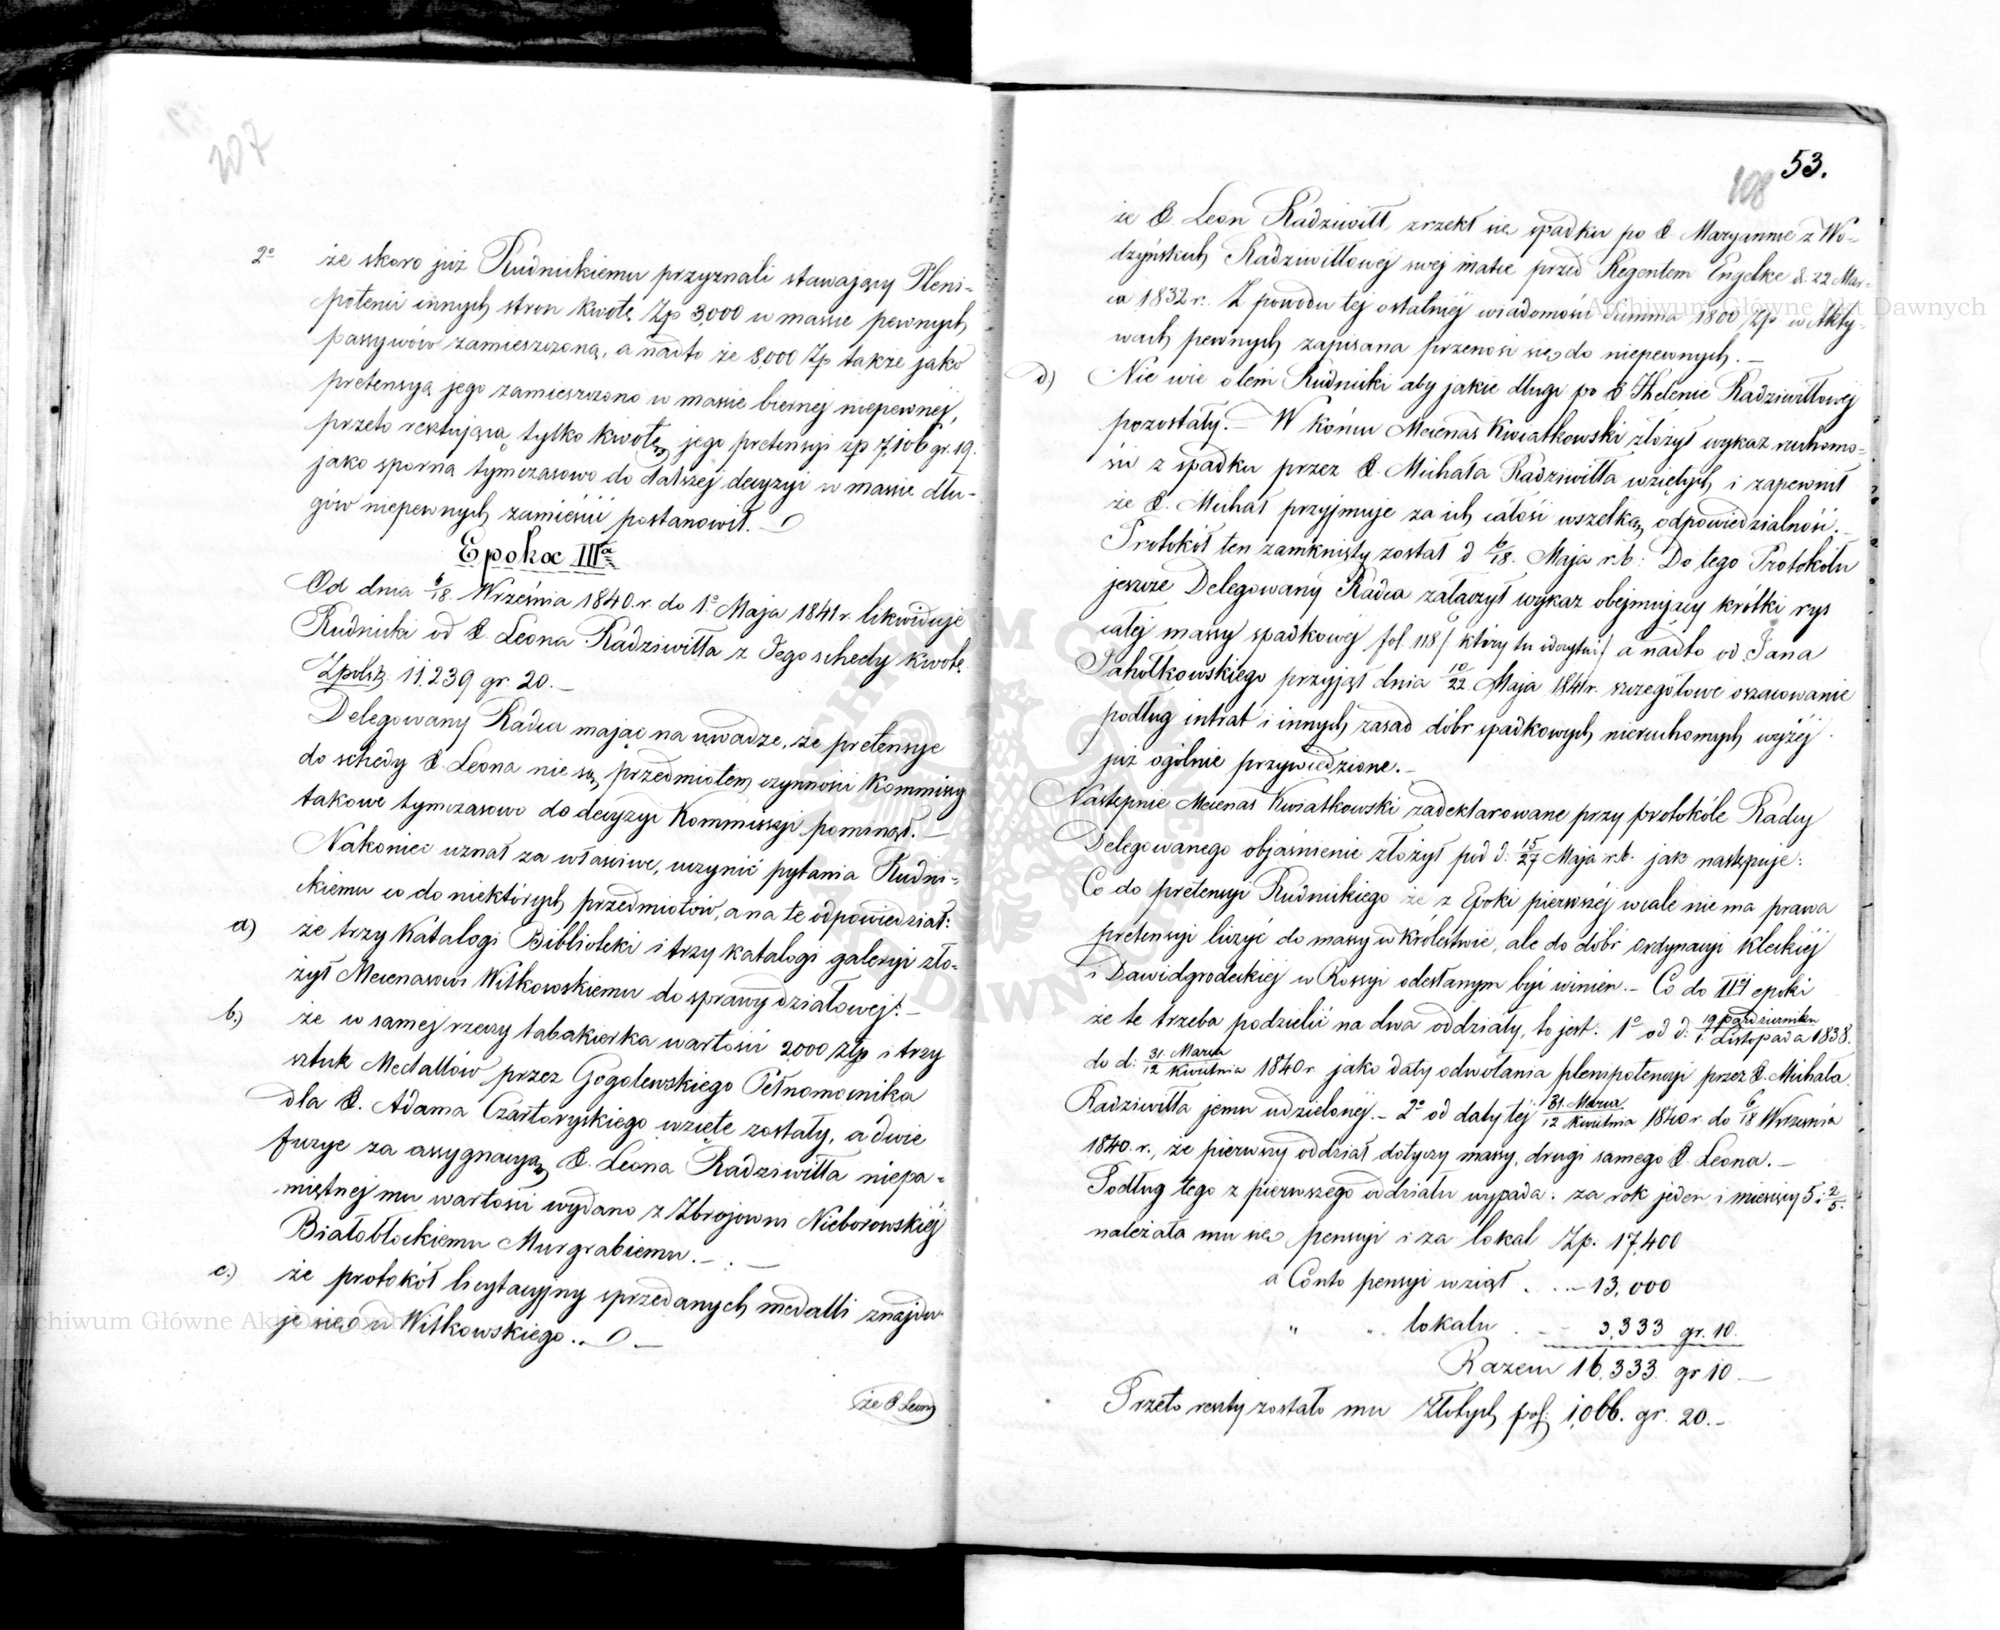 207
2º że skoro już Rudnickiemu przyznali stawający Pleni-
potenci innych stron kwotę Zp 3,000 w massie pewnych
passywów zamieszczoną, a nadto że 8,000 Zp także jako
pretensya jego zamieszczono w massie biernej niepewnej,
przeto resztującą tylko kwotę jego pretensyi zp 7,106 gr. 19.
jako sporną tymczasowo do dalszej decyzyi w massie dłu-
gów niepewnych zamieścić postanowił.
Epoka IIIa
Od dnia 6/18. Września 1840. r. do 1º Maja 1841 r. likwiduje
Rudnicki od X. Leona Radziwiłła z Jego schedy kwotę
Zpolsk. 11.239 gr. 20.–
Delegowany Radca mając na uwadze, że pretensye
do schedy X. Leona nie są przedmiotem czynności Kommissyi
takowe tymczasowo do decyzyi Kommissyi pominął.–
Nakoniec uznał za właściwe, uczynić pytania Rudni-
ckiemu co do niektórych przedmiotów, a na te odpowiedział:
a) że trzy katalogi Biblioteki i trzy katalogi galeryi zło-
żył Mecenasowi Witkowskiemu do sprawy działowej.–
b.) że w samej rzeczy tabakierka wartości 2000 złp i trzy
sztuk Medallów przez Gogolewskiego Pełnomocnika
dla X. Adama Czartoryskiego wzięte zostały, a dwie
fuzye za assygnacyą X. Leona Radziwiłła niepa-
miętnej mu wartości wydano z Zbrojowni Nieborowskiéj
Białobłockiemu Murgrabiemu.–.–
c.) że protokół licytacyjny sprzedanych medalli znajdu-
je się u Witkowskiego.
że X Leon
53.
108
że X. Leon Radziwiłł, zrzekł się spadku po X. Maryannie z Wo-
dzyńskich Radziwiłłowej swej matce przed Regentem Engelke d. 22 Mar-
ca 1832 r. Z powodu tej ostatniéj wiadomości summa 1800 Zp w Akty-
wach pewnych zapisana przenosi się do niepewnych.–
d) Nie wie o tem Rudnicki aby jakie długi po X Helenie Radziwiłłowej
pozostały.– W końcu Mecenas Kwiatkowski złożył wykaz ruchomo-
ści z spadku przez X. Michała Radziwiłła wziętych i zapewnił
że X. Michał przyjmuje za ich całość wszelką odpowiedzialność.–
Protokół ten zamknięty został d 6/18. Maja r.b: Do tego Protokółu
jeszcze Delegowany Radca załączył wykaz obejmujący krótki rys
całej massy spadkowej fol. 118/ który tu odczytać/ a nadto od Jana
Pahołkowskiego przyjął dnia 10/22 Maja 1841r. szczegółowe oszacowanie
podług intrat i innych zasad dóbr spadkowych nieruchomych wyżéj
już ogólnie przywiedzione.–
Następnie Mecenas Kwiatkowski zadeklarowane przy protokóle Radcy
Delegowanego objaśnienie złożył pod d: 15/27 Maja r.b. jak następuje:
Co do pretensyi Rudnickiego że z Epoki pierwszéj wcale nie ma prawa
pretensyi liczyć do massy w Królestwie, ale do dóbr ordynacyi Kleckiéj
i Dawidgrodeckiéj w Rossyi odesłanym być winien.– Co do IIéj epoki
że te trzeba podzielić na dwa oddziały, to jest: 1º od d: 19 października/1. Listopada 1838.
do d: 31. Marca/12 Kwietnia 1840r jako daty odwołania plenipotencyi przez X. Michała
Radziwiłła jemu udzielonéj.– 2º od daty téj 31. Marca/12 Kwietnia 1840 r do 6/18 Września
1840. r., że pierwszy oddział dotyczy massy, drugi samego X. Leona.–
Podług tego z pierwszego oddziału wypada: za rok jeden i miesięcy 5 i 2/5.
należała mu się pensyi i za lokal Zp. 17,400
a Conto pensyi wziął . . .– 13,000
" " lokalu . – – 3,333 gr. 10.
Razem 16,333 gr 10.–
Przeto reszty zostało mu Złotych pol. 1,066. gr. 20.–
Archiwum Główne Akt Dawnych
Archiwum Główne Akt Dawnych